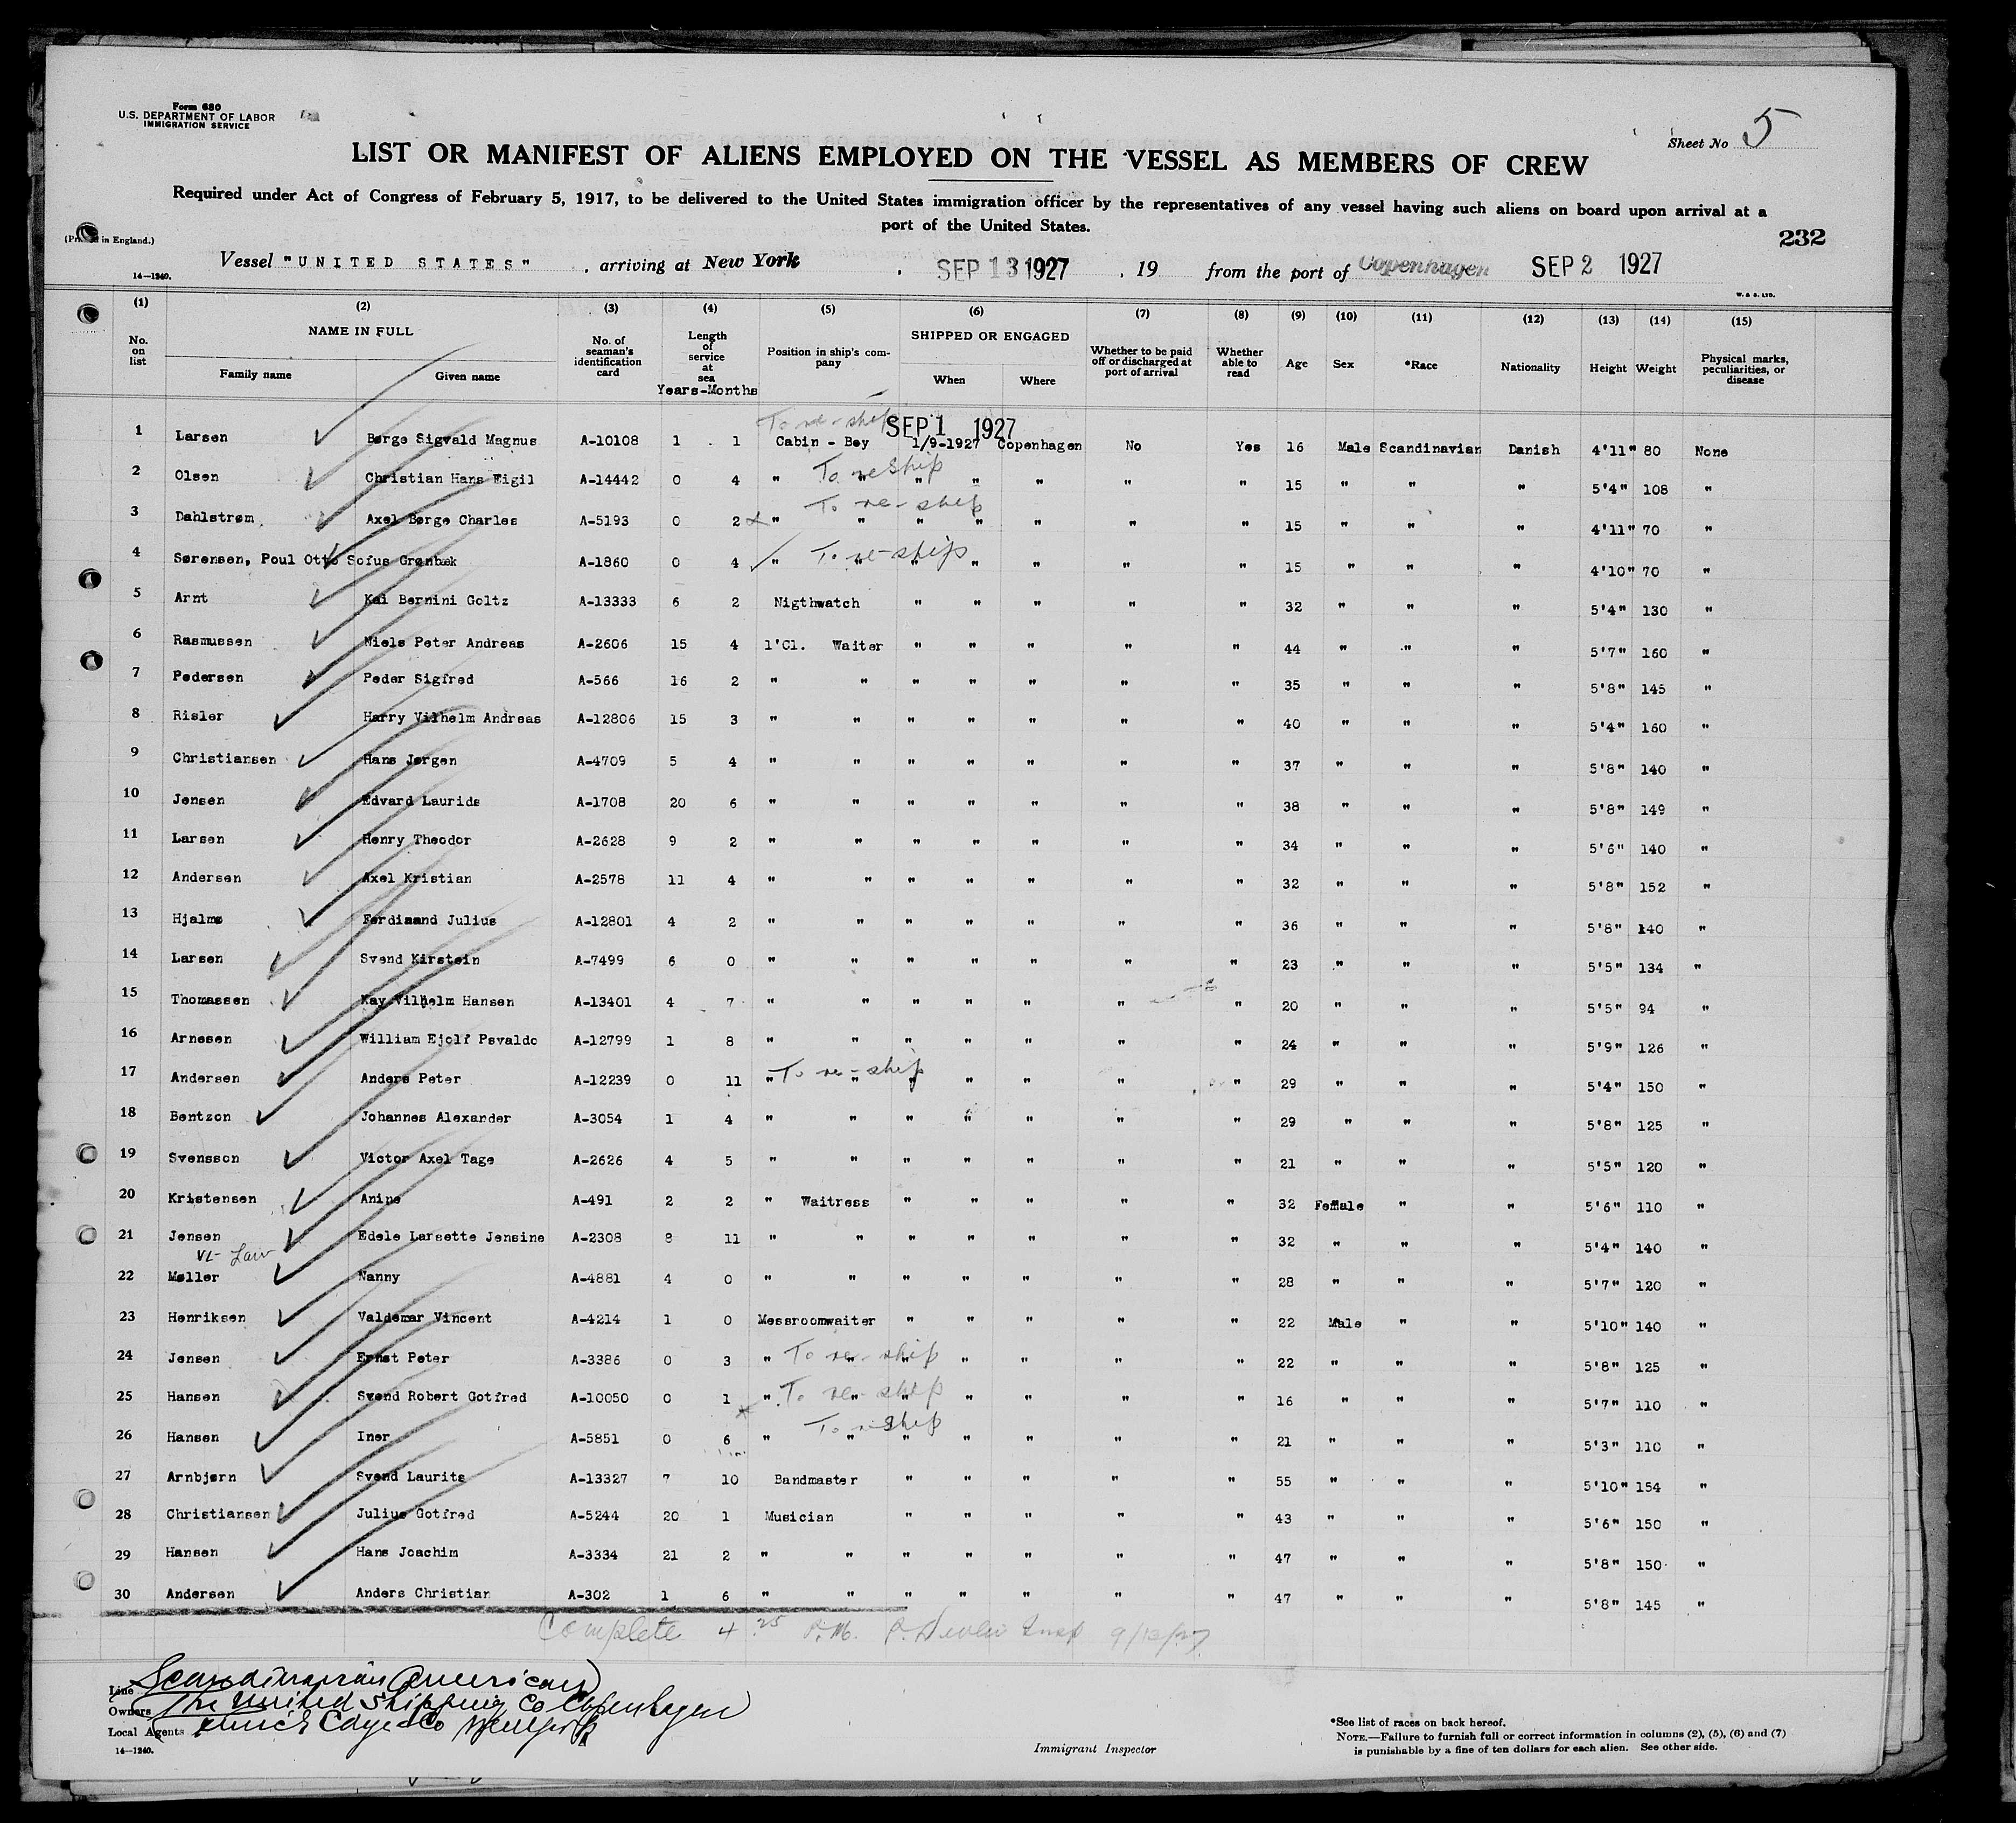 Form 680
U.S. DEPARTMENT OF LABOR
IMMIGRATION SERVICE
Sheet No 5
LIST OR MANIFEST OF ALIENS EMPLOYED ON THE VESSEL AS MEMBERS OF CREW
Required under Act of Congress of February 5, 1917, to be delivered to the United States immigration officer by the representatives of any vessel having such aliens on board upon arrival at a
port of the United States.
(Printed in England.)
232
Vessel "UNITED STATES" , arriving at New York , SEP 13 1927 , 19 from the port of Copenhagen SEP 2 1927
14—1240.
W. & S. LTD.
(1) (2) (3) (4) (5) (6) (7) (8) (9) (10) (11) (12) (13) (14) (15)
No. on list NAME IN FULL Family name Given name No. of seaman's identification card Length of service at sea Years-Months Position in ship's company SHIPPED OR ENGAGED When Where Whether to be paid off or discharged at port of arrival Whether able to read Age Sex *Race Nationality Height Weight Physical marks, peculiarities, or disease
To re-ship SEP 1 1927
1 Larsen Børge Sigvald Magnus A-10108 1 1 Cabin - Boy 1/9-1927 Copenhagen No Yes 16 Male Scandinavian Danish 4'11" 80 None
2 Olsen Christian Hans Eigil A-14442 0 4 " To reship " " " " " " 15 " " " 5'4" 108 "
3 Dahlstrøm Axel Børge Charles A-5193 0 2 " To re-ship " " " " " " 15 " " " 4'11" 70 "
4 Sørensen, Poul Otto Sofus Grønbæk A-1860 0 4 " To re-ship " " " " " " 15 " " " 4'10" 70 "
5 Arnt Kai Bernini Goltz A-13333 6 2 Nigthwatch " " " " " 32 " " " 5'4" 130 "
6 Rasmussen Niels Peter Andreas A-2606 15 4 1'Cl. Waiter " " " " " 44 " " " 5'7" 160 "
7 Pedersen Peder Sigfred A-566 16 2 " " " " " " " 35 " " " 5'8" 145 "
8 Risler Harry Vilhelm Andreas A-12806 15 3 " " " " " " " 40 " " " 5'4" 160 "
9 Christiansen Hans Jørgen A-4709 5 4 " " " " " " " 37 " " " 5'8" 140 "
10 Jensen Edvard Laurids A-1708 20 6 " " " " " " " 38 " " " 5'8" 149 "
11 Larsen Henry Theodor A-2628 9 2 " " " " " " " 34 " " " 5'6" 140 "
12 Andersen Axel Kristian A-2578 11 4 " " " " " " " 32 " " " 5'8" 152 "
13 Hjalmø Ferdinand Julius A-12801 4 2 " " " " " " " 36 " " " 5'8" 140 "
14 Larsen Svend Kirstein A-7499 6 0 " " " " " " " 23 " " " 5'5" 134 "
15 Thomassen Kay Vilhelm Hansen A-13401 4 7 " " " " " " " 20 " " " 5'5" 94 "
16 Arnesen William Ejolf Psvaldo A-12799 1 8 " " " " " " " 24 " " " 5'9" 126 "
17 Andersen Anders Peter A-12239 0 11 " To re-ship " " " " " " 29 " " " 5'4" 150 "
18 Bentzon Johannes Alexander A-3054 1 4 " " " " " " " 29 " " " 5'8" 125 "
19 Svensson Victor Axel Tage A-2626 4 5 " " " " " " " 21 " " " 5'5" 120 "
20 Kristensen Anine A-491 2 2 " Waitress " " " " " 32 Female " " 5'6" 110 "
21 Jensen Edele Larsette Jensine A-2308 8 11 " " " " " " " 32 " " " 5'4" 140 "
22 Møller Nanny A-4881 4 0 " " " " " " " 28 " " " 5'7" 120 "
23 Henriksen Valdemar Vincent A-4214 1 0 Messroomwaiter " " " " " 22 Male " " 5'10" 140 "
24 Jensen Ernst Peter A-3386 0 3 " To re-ship " " " " " " 22 " " " 5'8" 125 "
25 Hansen Svend Robert Gotfred A-10050 0 1 " To re-ship " " " " " " 16 " " " 5'7" 110 "
26 Hansen Iner A-5851 0 6 " To reship " " " " " " 21 " " " 5'3" 110 "
27 Arnbjørn Svend Laurits A-13327 7 10 Bandmaster " " " " " 55 " " " 5'10" 154 "
28 Christiansen Julius Gotfred A-5244 20 1 Musician " " " " " 43 " " " 5'6" 150 "
29 Hansen Hans Joachim A-3334 21 2 " " " " " " " 47 " " " 5'8" 150 "
30 Andersen Anders Christian A-302 1 6 " " " " " " " 47 " " " 5'8" 145 "
Complete 4 25 P.M. Insp 9/13/27
Line Scandinavian American
Owners The United Shipping Co Copenhagen
Local Agents New York
14—1240.
Immigrant Inspector
*See list of races on back hereof.
NOTE.—Failure to furnish full or correct information in columns (2), (5), (6) and (7)
is punishable by a fine of ten dollars for each alien. See other side.